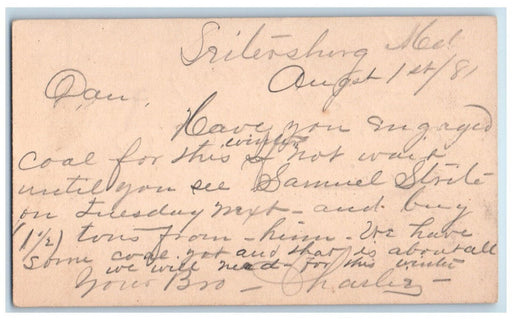 Sritersburg Md
August 1st/81
Dan,
Have you engaged
coal for this winter if not wait
until you see Samuel Strite
on Tuesday next - and buy
(1½) tons from - him - We have
some coal yet and that is about all
we will need - for this winter
Your Bro - Charley -